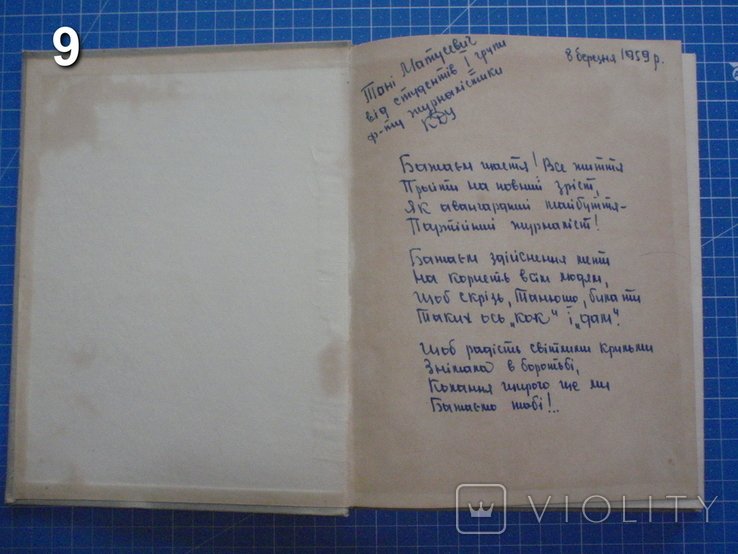 9
Тані Матусевич
від студентів I групи
ф-ту журналістики
КДУ
8 березня 1959 р.
Бажаєм щастя! Все життя
Пройти на повний зріст,
Як авангардний майбуття –
Партійний журналіст!
Бажаєм здійснення мент
На користь всім людям,
Щоб скрізь, Танюшо, бити
Таких ось „кок" і „дам".
Щоб радість світлими крильми
Знімала в боротьбі,
Кохання щирого ще ми
Бажаємо тобі!..
VIOLITY